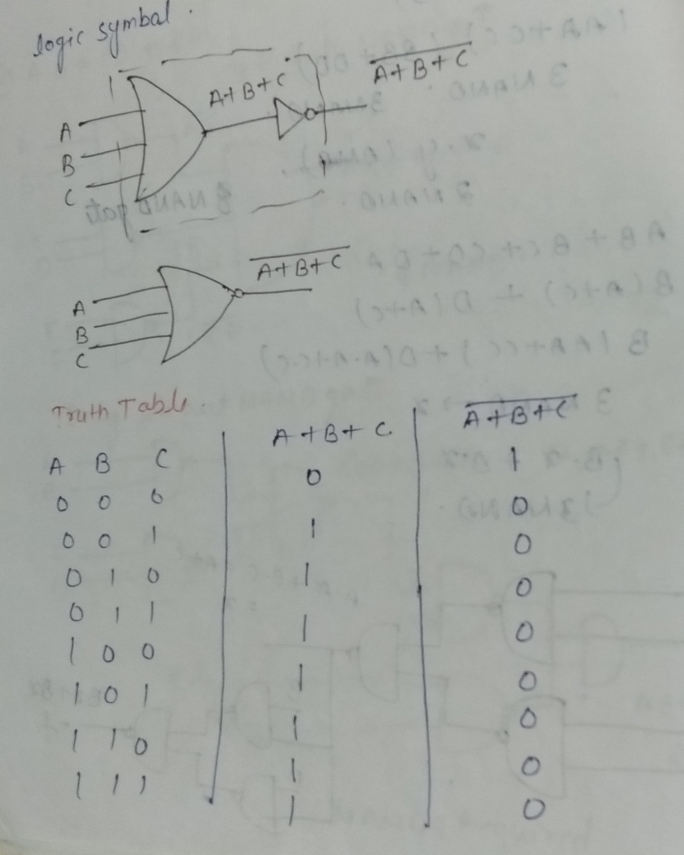 logic symbal.
A+B+C
A+B+C
A
B
C
A+B+C
A
B
C
Truth Table.
A B C A+B+C. A+B+C
0 0 0 0 1
0 0 1 1 0
0 1 0 1 0
0 1 1 1 0
1 0 0 1 0
1 0 1 1 0
1 1 0 1 0
1 1 1 1 0